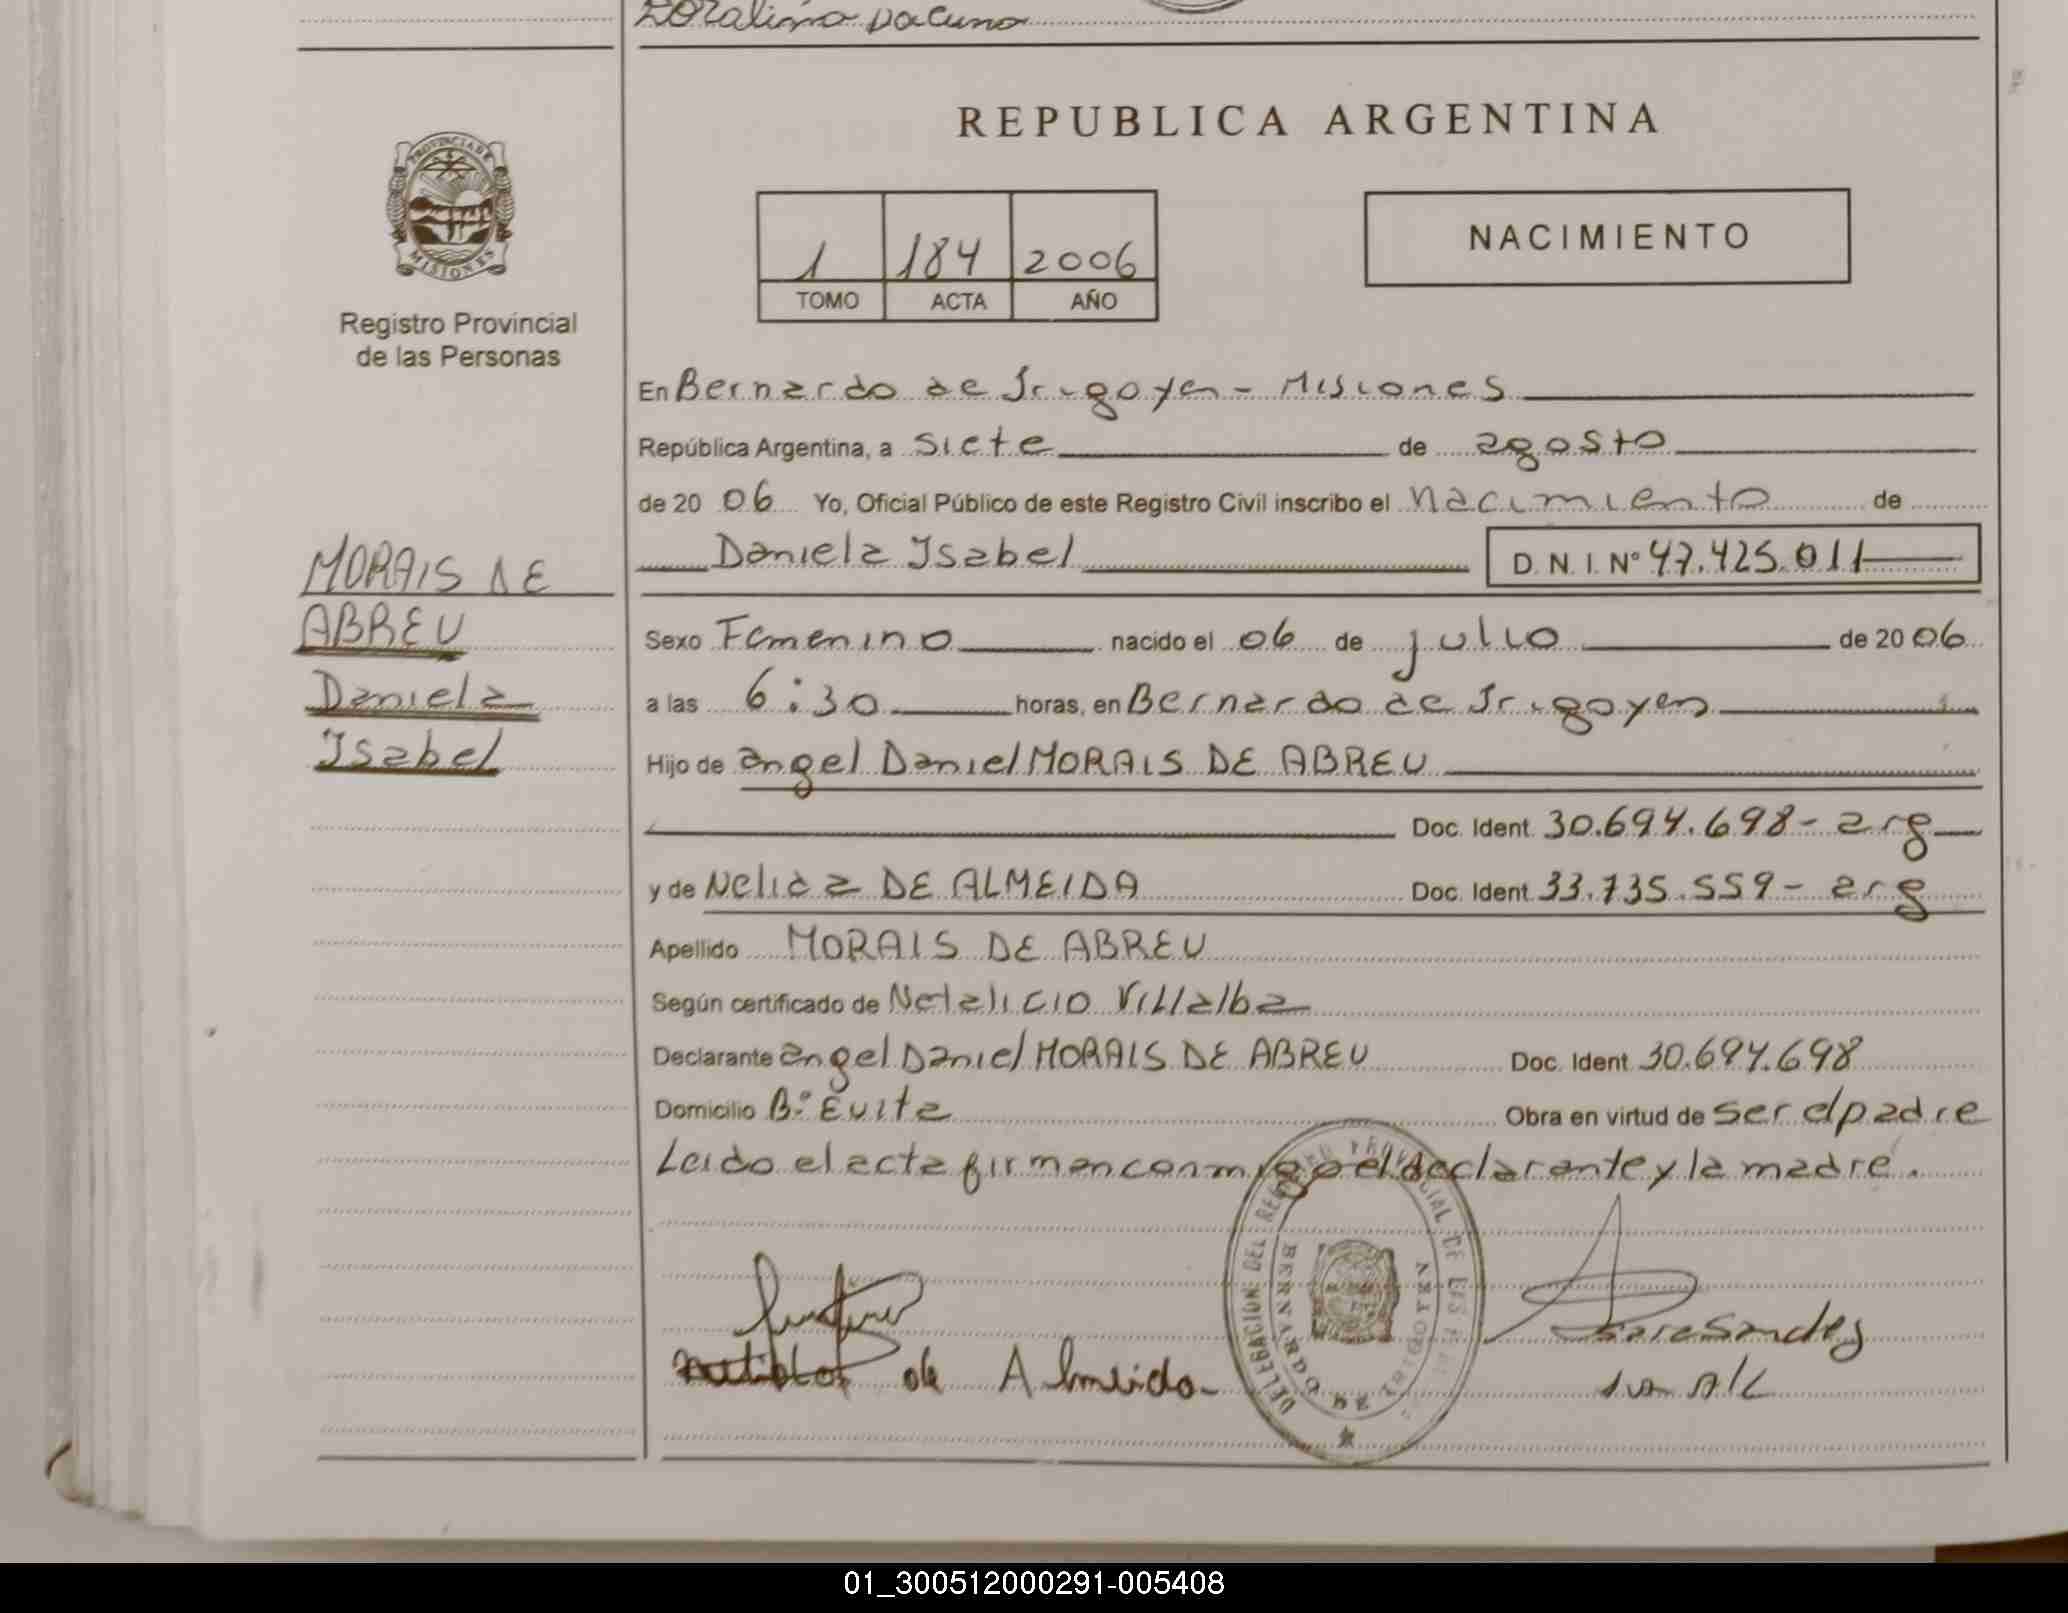 REPUBLICA ARGENTINA
PROVINCIA DE
MISIONES
Registro Provincial
de las Personas
1 184 2006
TOMO ACTA AÑO
NACIMIENTO
En Bernardo de Irigoyen - Misiones
República Argentina, a siete de agosto
de 20 06 Yo, Oficial Público de este Registro Civil inscribo el nacimiento de
Daniela Isabel D. N. I. Nº 47.425.011
MORAIS DE
ABREU
Daniela
Isabel
Sexo Femenino nacido el 06 de julio de 20 06
a las 6:30 horas, en Bernardo de Irigoyen
Hijo de angel Daniel MORAIS DE ABREU
Doc. Ident. 30.694.698 - arg
y de Nelida DE ALMEIDA Doc. Ident. 33.735.559 - arg
Apellido MORAIS DE ABREU
Según certificado de Natalicio Villalba
Declarante angel Daniel MORAIS DE ABREU Doc. Ident. 30.694.698
Domicilio Bº Evita Obra en virtud de ser el padre
Leido el acta firman conmigo el declarante y la madre.
DELEGACION DEL REGISTRO PROVINCIAL DE LAS
BERNARDO DE IRIGOYEN
de Almeida
01_300512000291-005408